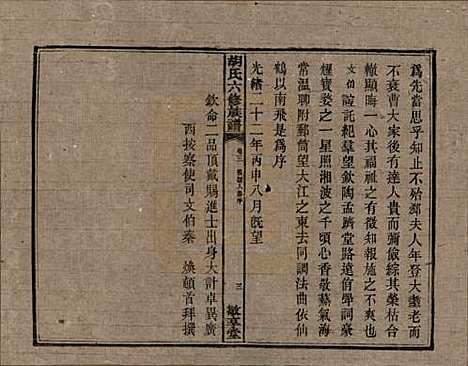 爲先當思乎知止不殆鄒夫人年登大耋老而
不衰曹大家後有達人貴而彌儉綜其榮枯合
轍顯晦一心其福祉之大可徵知報施之不爽
文伯 誼託紀羣望欽陶孟躋堂路遠侑斝詞蕪
煙寶婺之一星照湘波之千頃心香敬爇氣海
常溫聊附郵筒望大江之東去同調法曲依仙
鶴以南飛是爲序
光緒二十二年丙申八月既望
欽命二品頂戴賜進士出身大計卓異廣
西按察使司文伯秦 煥頓首拜撰
胡氏六修族譜
卷三
三
敏睾堂